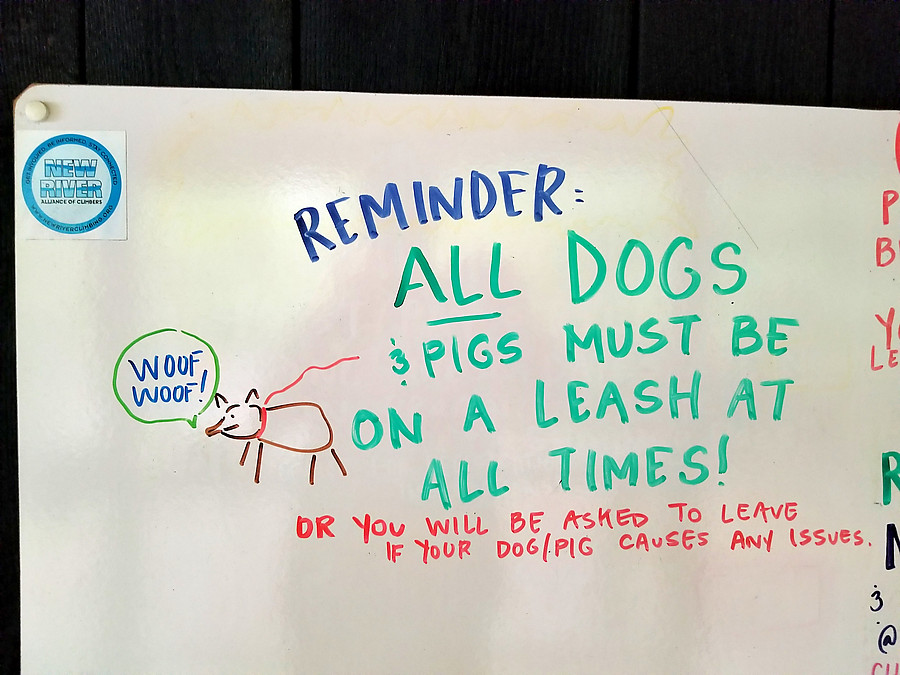 GET INVOLVED. BE INFORMED. STAY CONNECTED
NEW
RIVER
ALLIANCE OF CLIMBERS
WWW.NEWRIVERCLIMBING.ORG
REMINDER:
ALL DOGS
& PIGS MUST BE
ON A LEASH AT
ALL TIMES!
OR YOU WILL BE ASKED TO LEAVE
IF YOUR DOG/PIG CAUSES ANY ISSUES.
WOOF
WOOF!
&
@